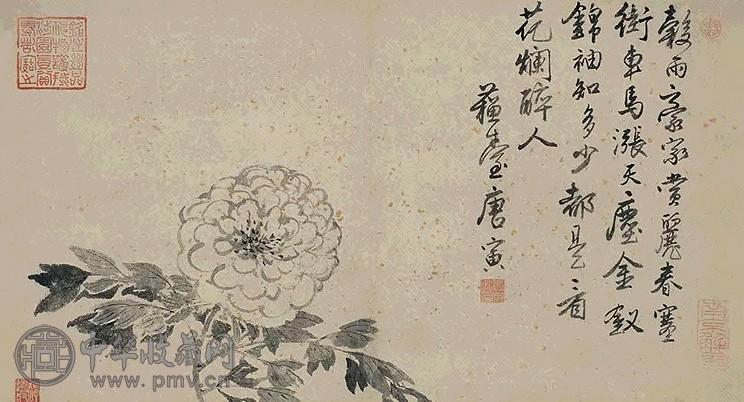 穀雨豪家賞麗春塞
街車馬漲天塵金釵
錦袖知多少都是看
花爛醉人
蘇臺唐寅
中华收藏网
www.pmv.cn